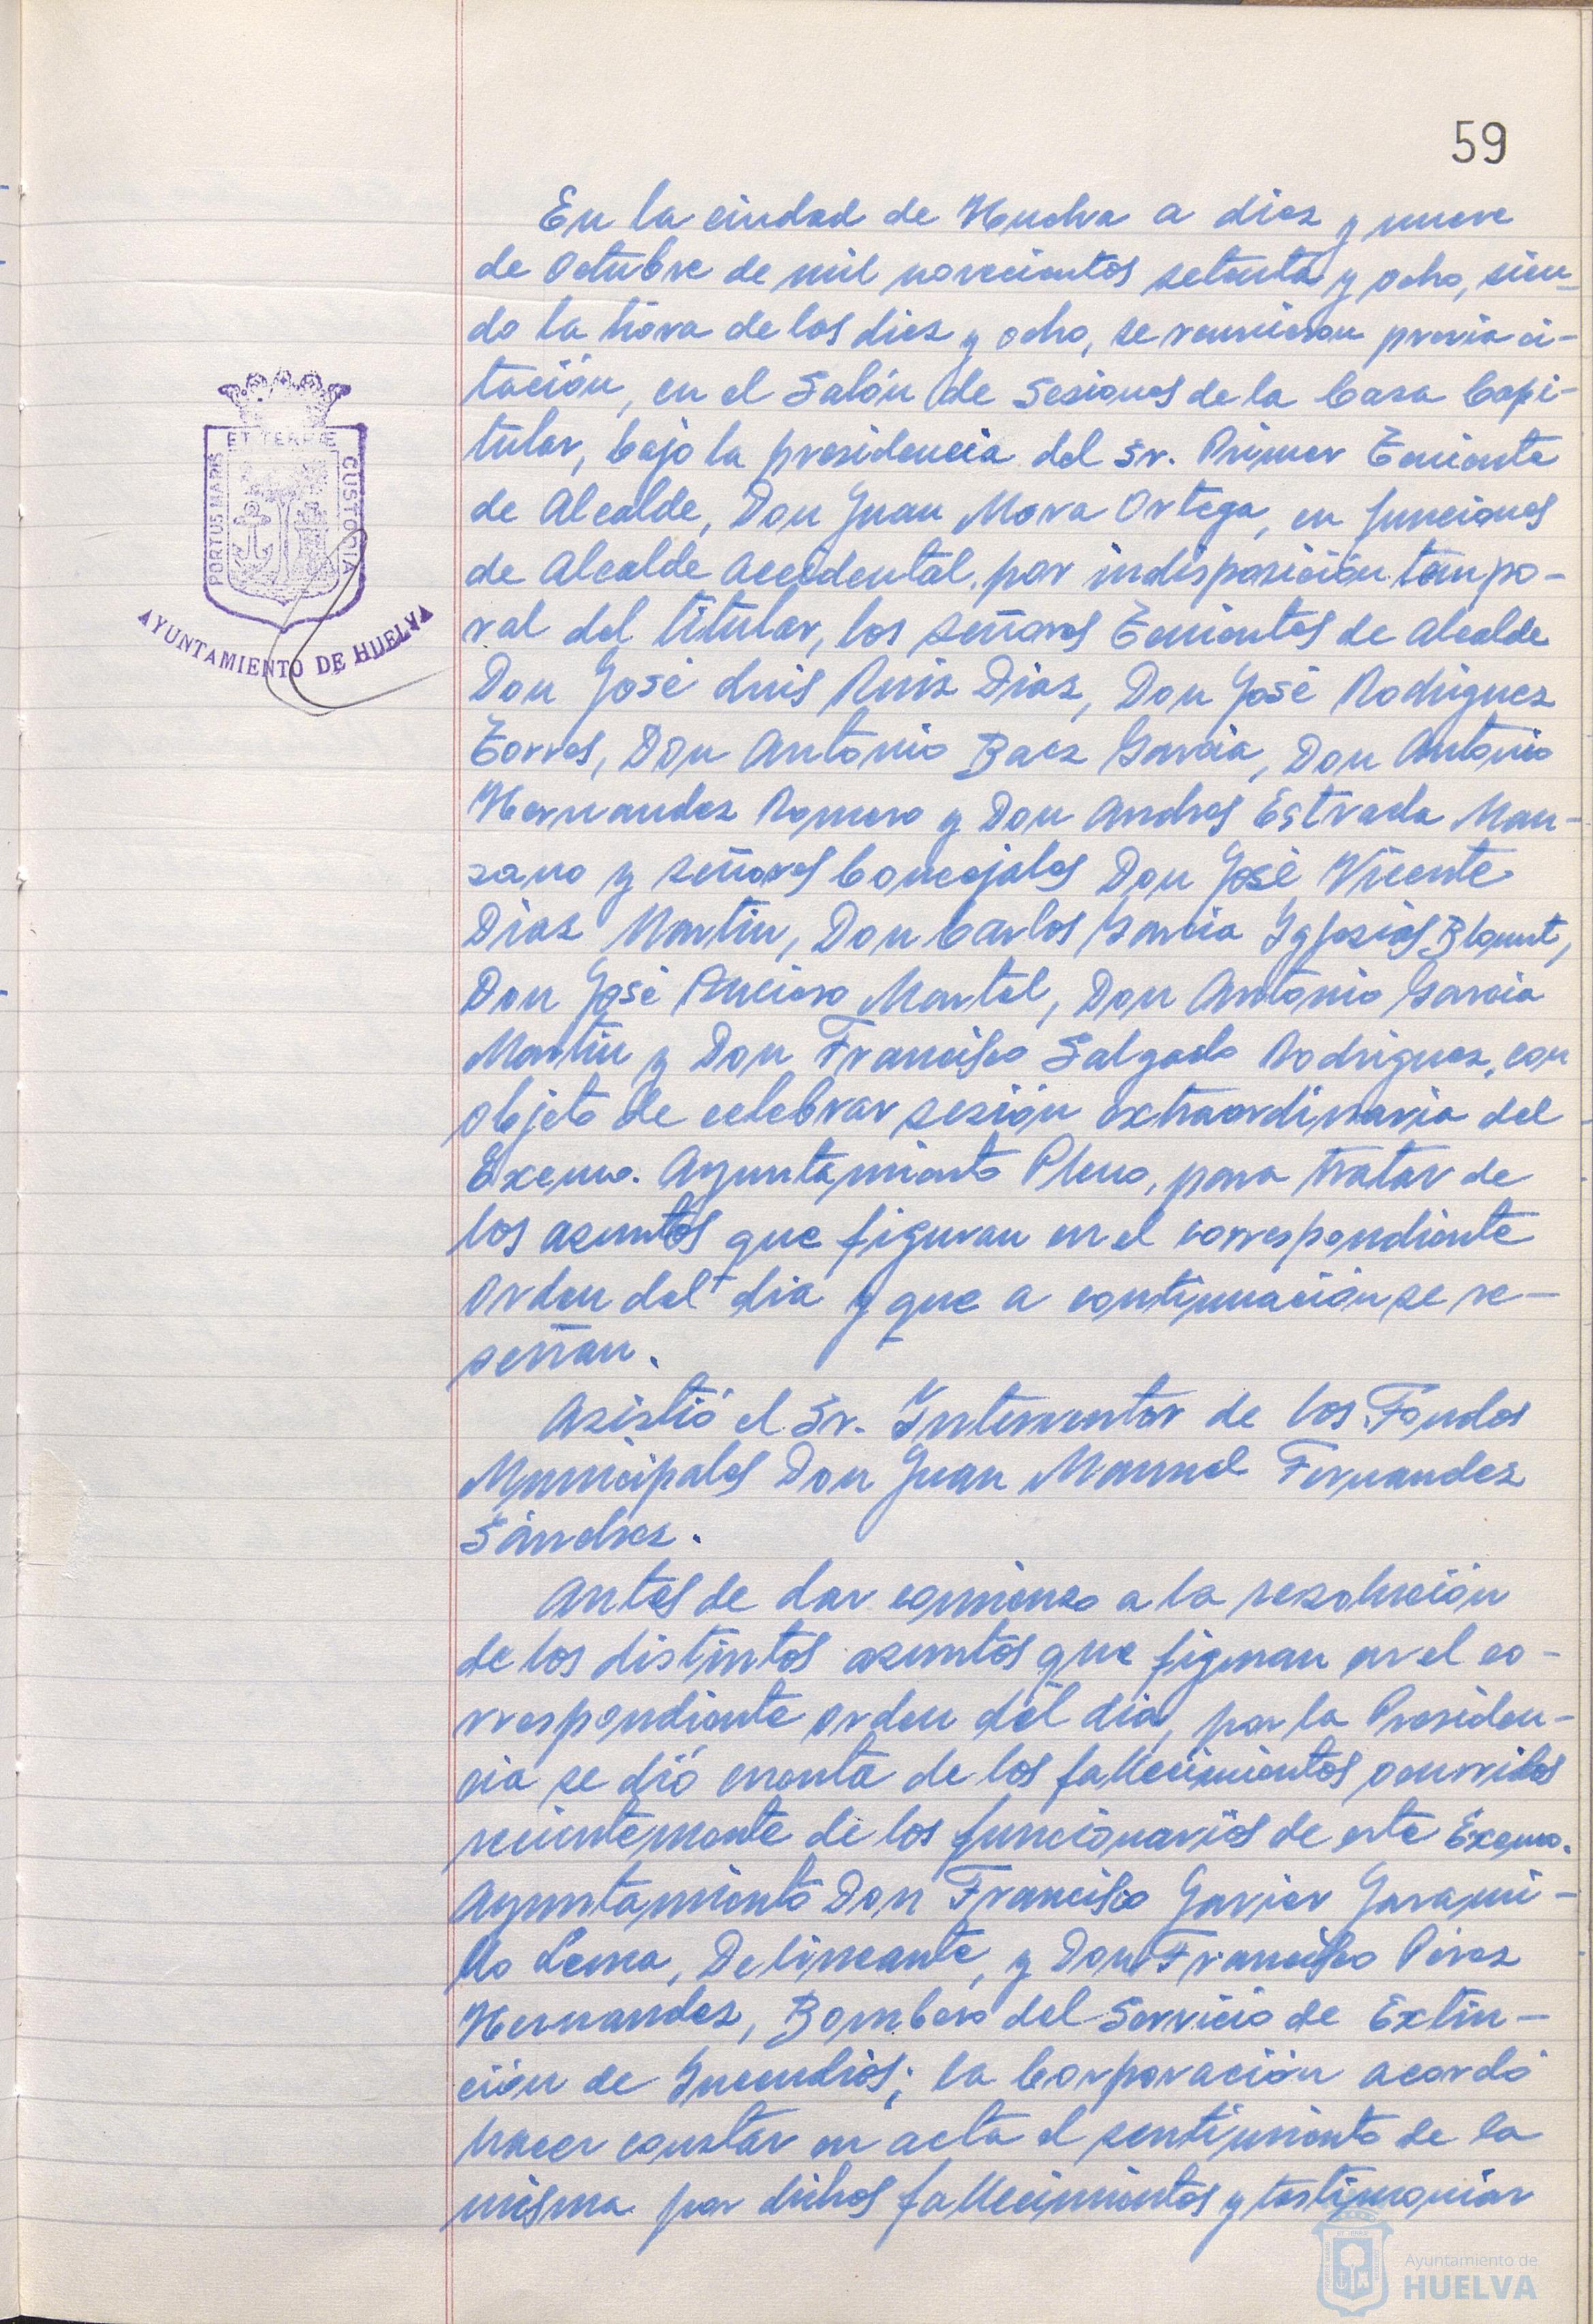 59
En la ciudad de Huelva a diez y nueve
de Octubre de mil novecientos setenta y ocho, sien-
do la hora de las diez y ocho, se reunieron previa ci-
tación, en el Salón de Sesiones de la Casa Capi-
tular, bajo la presidencia del Sr. Primer Teniente
de Alcalde, Don Juan Mora Ortega, en funciones
de Alcalde Accidental, por indisposición tempo-
ral del titular, los señores Tenientes de Alcalde
Don José Luis Ruiz Diaz, Don José Rodriguez
Torres, Don Antonio Baez Garcia, Don Antonio
Hernandez Romero y Don Andres Estrada Man-
zano y señores Concejales Don José Vicente
Diaz Martin, Don Carlos Garcia Iglesias Blount,
Don José Martel, Don Antonio Garcia
Martin y Don Francisco Salgado Rodriguez, con
objeto de celebrar sesión extraordinaria del
Excmo. Ayuntamiento Pleno, para tratar de
los asuntos que figuran en el correspondiente
Orden del dia y que a continuación se re-
señan.
Asistió el Sr. Interventor de los Fondos
Municipales Don Juan Manuel Fernandez
Sánchez.
Antes de dar comienzo a la resolución
de los distintos asuntos que figuran en el co-
rrespondiente orden del dia, por la Presiden-
cia se dió cuenta de los fallecimientos ocurridos
recientemente de los funcionarios de este Excmo.
Ayuntamiento Don Francisco Javier Jarami-
llo Lema, Delineante, y Don Francisco Pérez
Hernandez, Bombero del Servicio de Extin-
ción de Incendios; la Corporación acordó
hacer constar en acta el sentimiento de la
misma por dichos fallecimientos y testimoniar
ET TERRÆ
PORTUS MARIS
CUSTODIA
AYUNTAMIENTO DE HUELVA
Ayuntamiento de
HUELVA